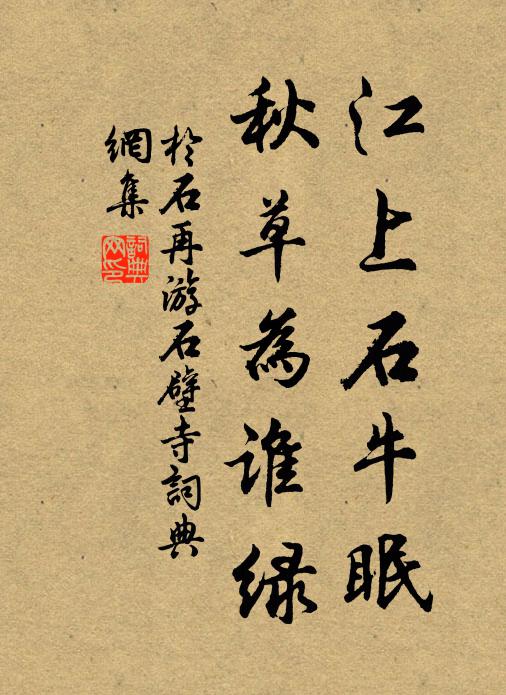 江上石牛眠
秋草為誰綠
於石再游石壁寺詞典
網集
詞典
网印